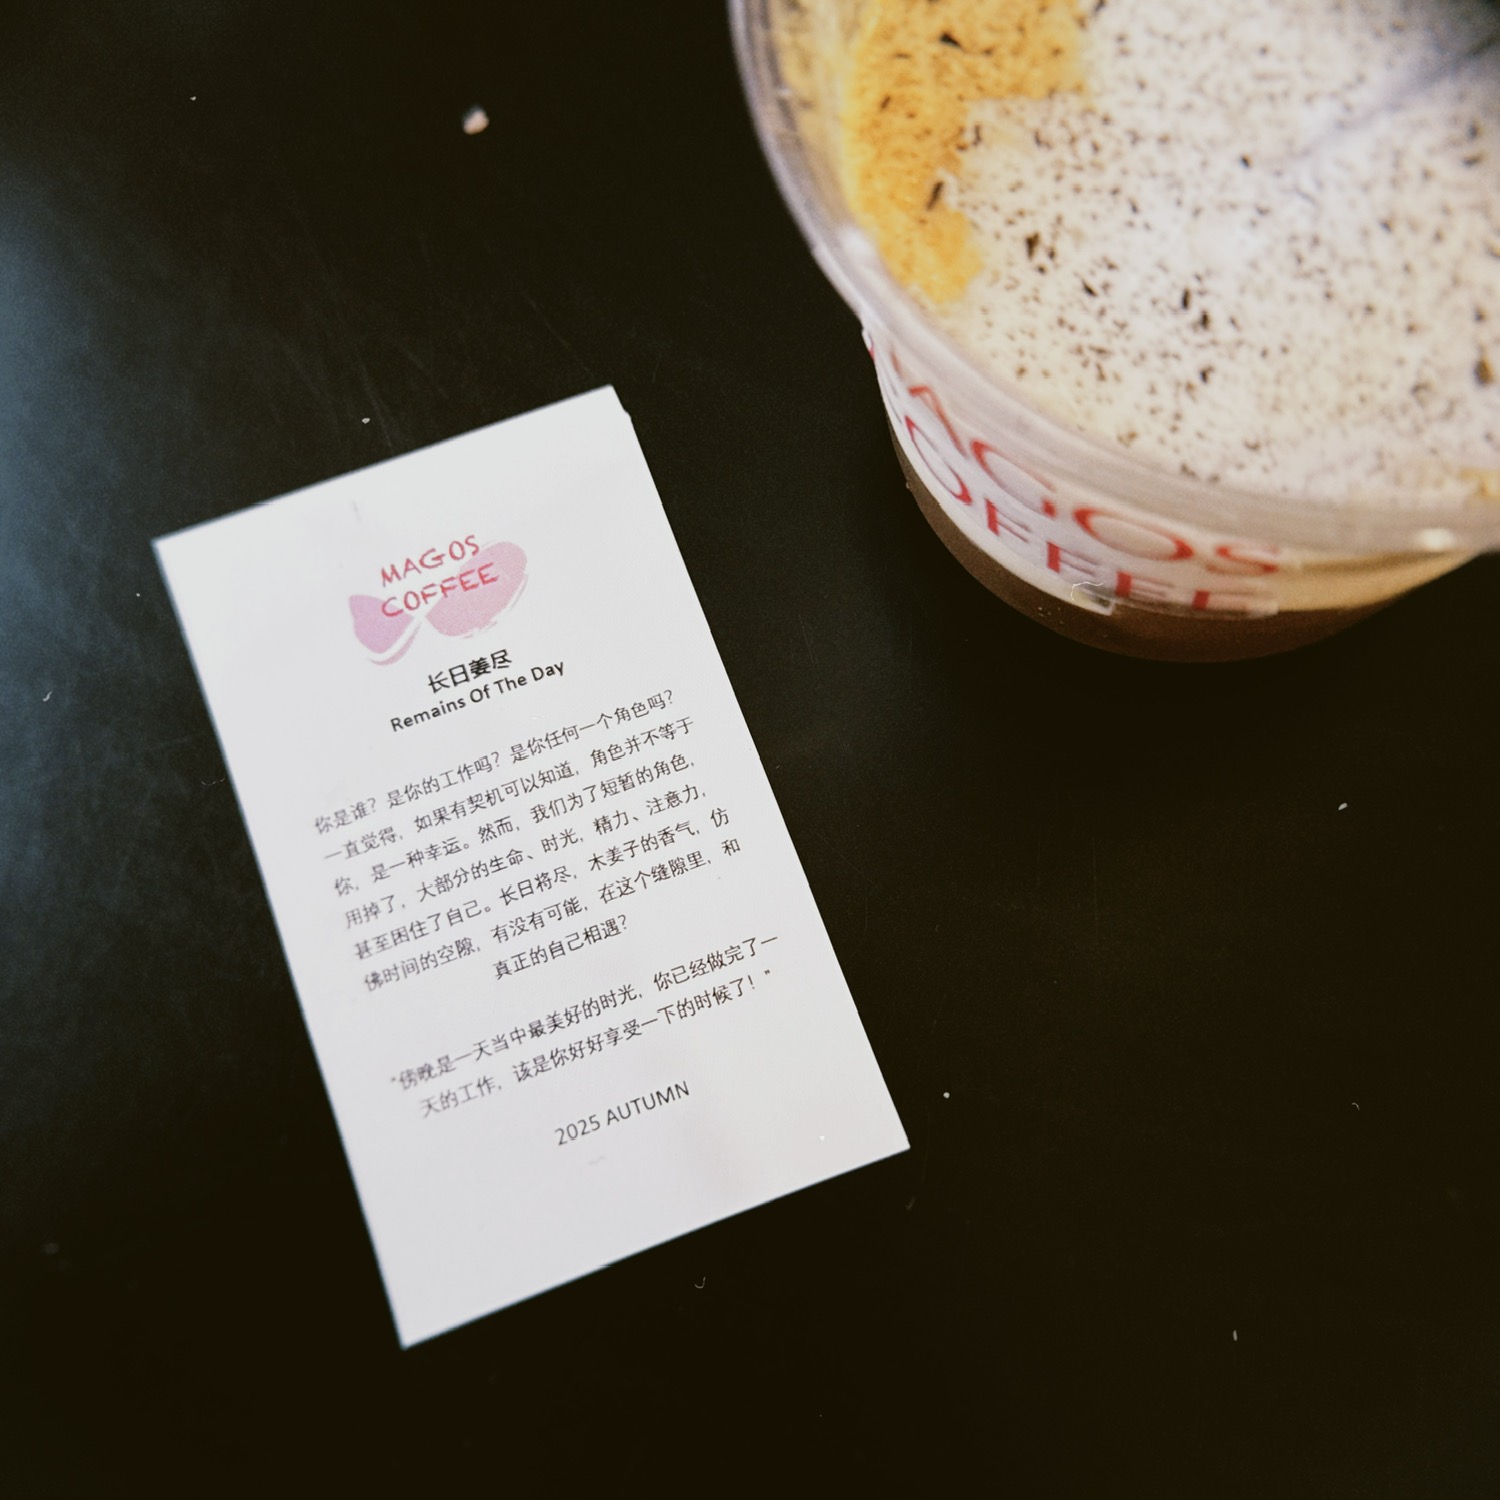 MAGOS
COFFEE
长日姜尽
Remains Of The Day
你是谁？是你的工作吗？是你任何一个角色吗？
一直觉得，如果有契机可以知道，角色并不等于
你，是一种幸运。然而，我们为了短暂的角色，
用掉了，大部分的生命、时光，精力、注意力，
甚至困住了自己。长日将尽，木姜子的香气，仿
佛时间的空隙，有没有可能，在这个缝隙里，和
真正的自己相遇？
“傍晚是一天当中最美好的时光，你已经做完了一
天的工作，该是你好好享受一下的时候了！”
2025 AUTUMN
MAGOS
COFFEE